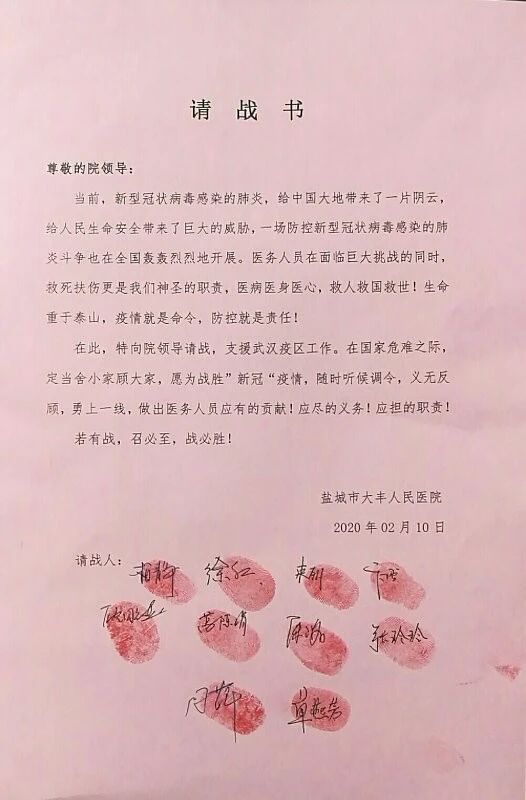 请战书
尊敬的院领导：
当前，新型冠状病毒感染的肺炎，给中国大地带来了一片阴云，
给人民生命安全带来了巨大的威胁，一场防控新型冠状病毒感染的肺
炎斗争也在全国轰轰烈烈地开展。医务人员在面临巨大挑战的同时，
救死扶伤更是我们神圣的职责，医病医身医心，救人救国救世！生命
重于泰山，疫情就是命令，防控就是责任！
在此，特向院领导请战，支援武汉疫区工作。在国家危难之际，
定当舍小家顾大家，愿为战胜”新冠“疫情，随时听候调令，义无反
顾，勇上一线，做出医务人员应有的贡献！应尽的义务！应担的职责！
若有战，召必至，战必胜！
盐城市大丰人民医院
2020年02月10日
请战人：
徐红
张玲玲